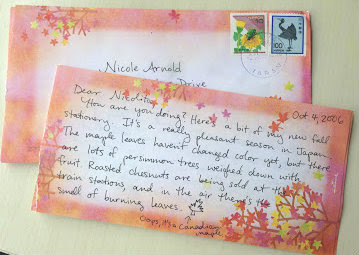 Nicole Arnold
Drive
NIPPON
NIPPON
100
Oct 4, 2006
Dear Nicole,
How are you doing? Here's a bit of my new fall
stationery. It's a really pleasant season in Japan.
The maple leaves haven't changed color yet, but there
are lots of persimmon trees weighed down with
fruit. Roasted chesnuts are being sold at the
train stations and in the air there's the
smell of burning leaves.
Oops, it's a Canadian
maple